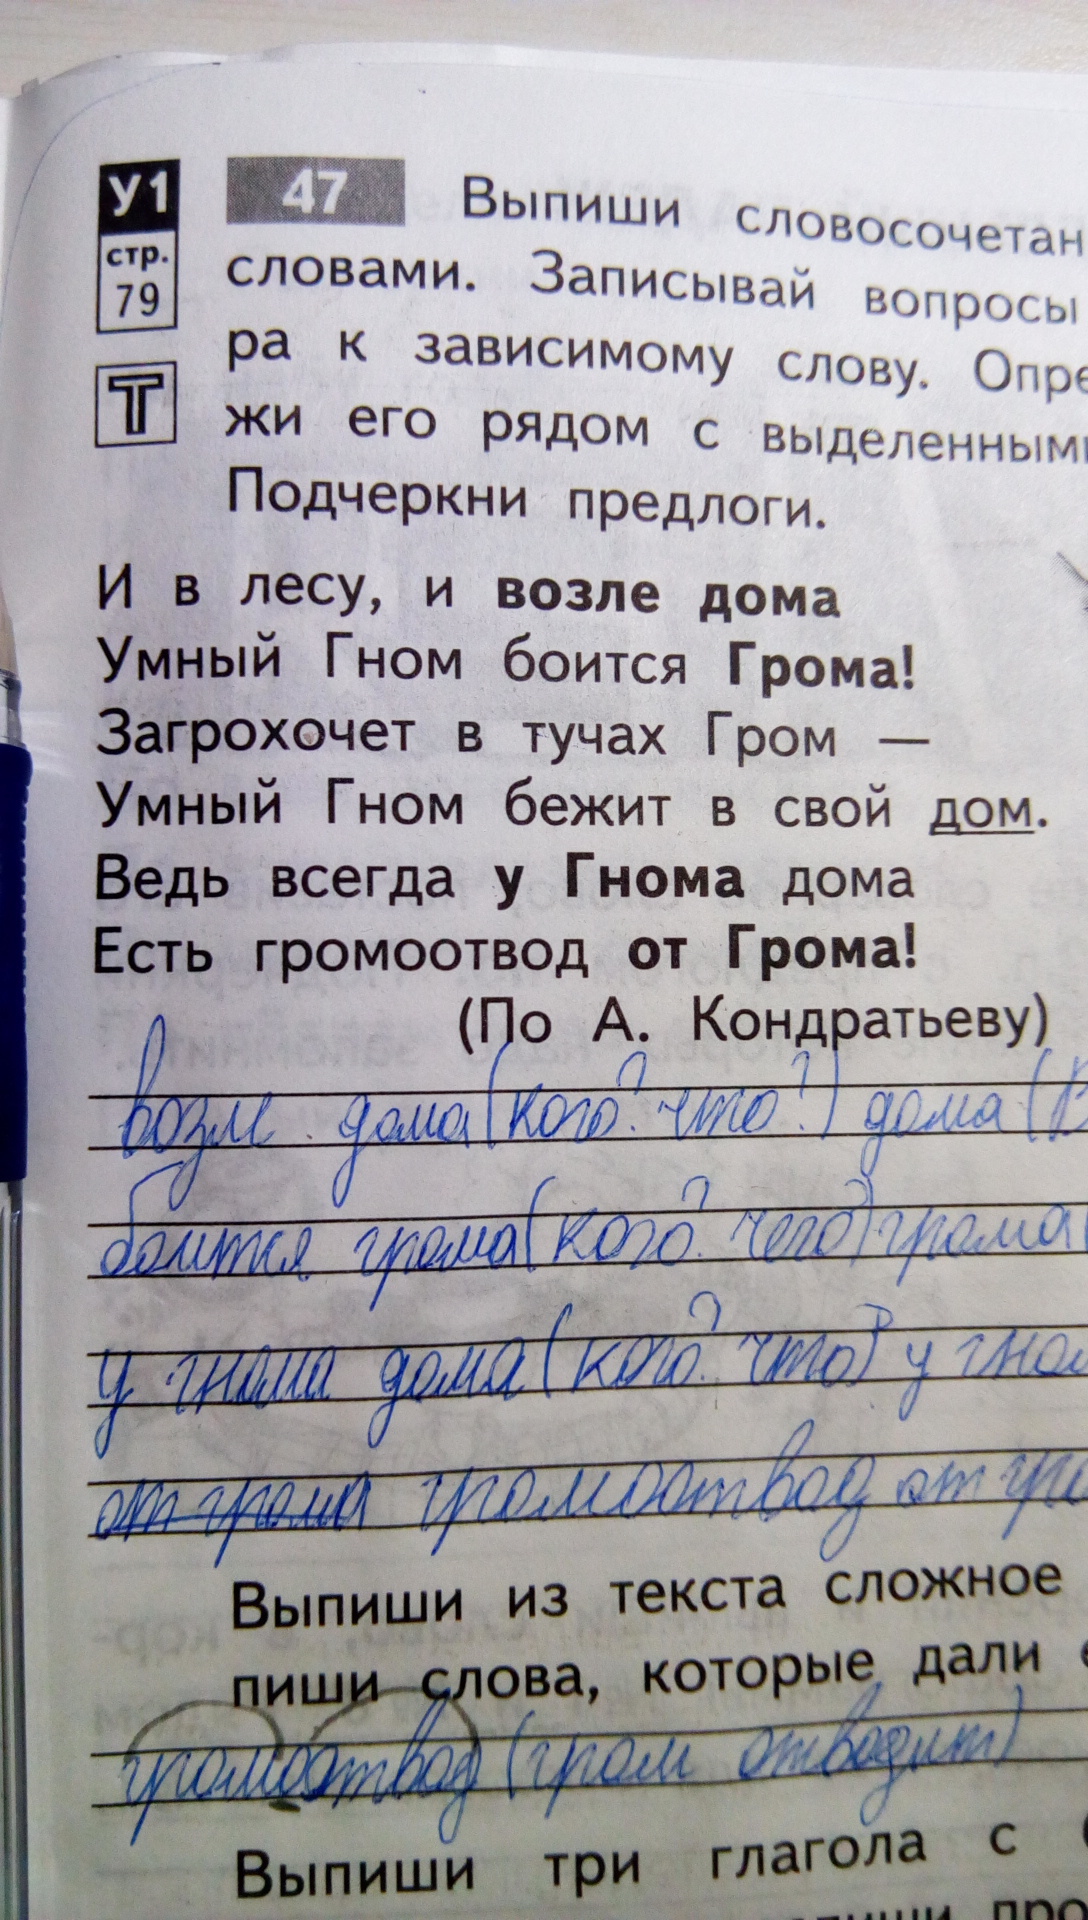 У1 47 Выпиши словосочетан
стр. словами. Записывай вопросы
79 ра к зависимому слову. Опре
Т жи его рядом с выделенными
Подчеркни предлоги.
И в лесу, и возле дома
Умный Гном боится Грома!
Загрохочет в тучах Гром —
Умный Гном бежит в свой дом.
Ведь всегда у Гнома дома
Есть громоотвод от Грома!
(По А. Кондратьеву)
возле дома (кого? что?) дома (
боится грома (кого? чего?) грома (
у гнома дома (кого? что?) у гном
от грома громоотвод от гро
Выпиши из текста сложное
пиши слова, которые дали е
громоотвод (гром отводит)
Выпиши три глагола с